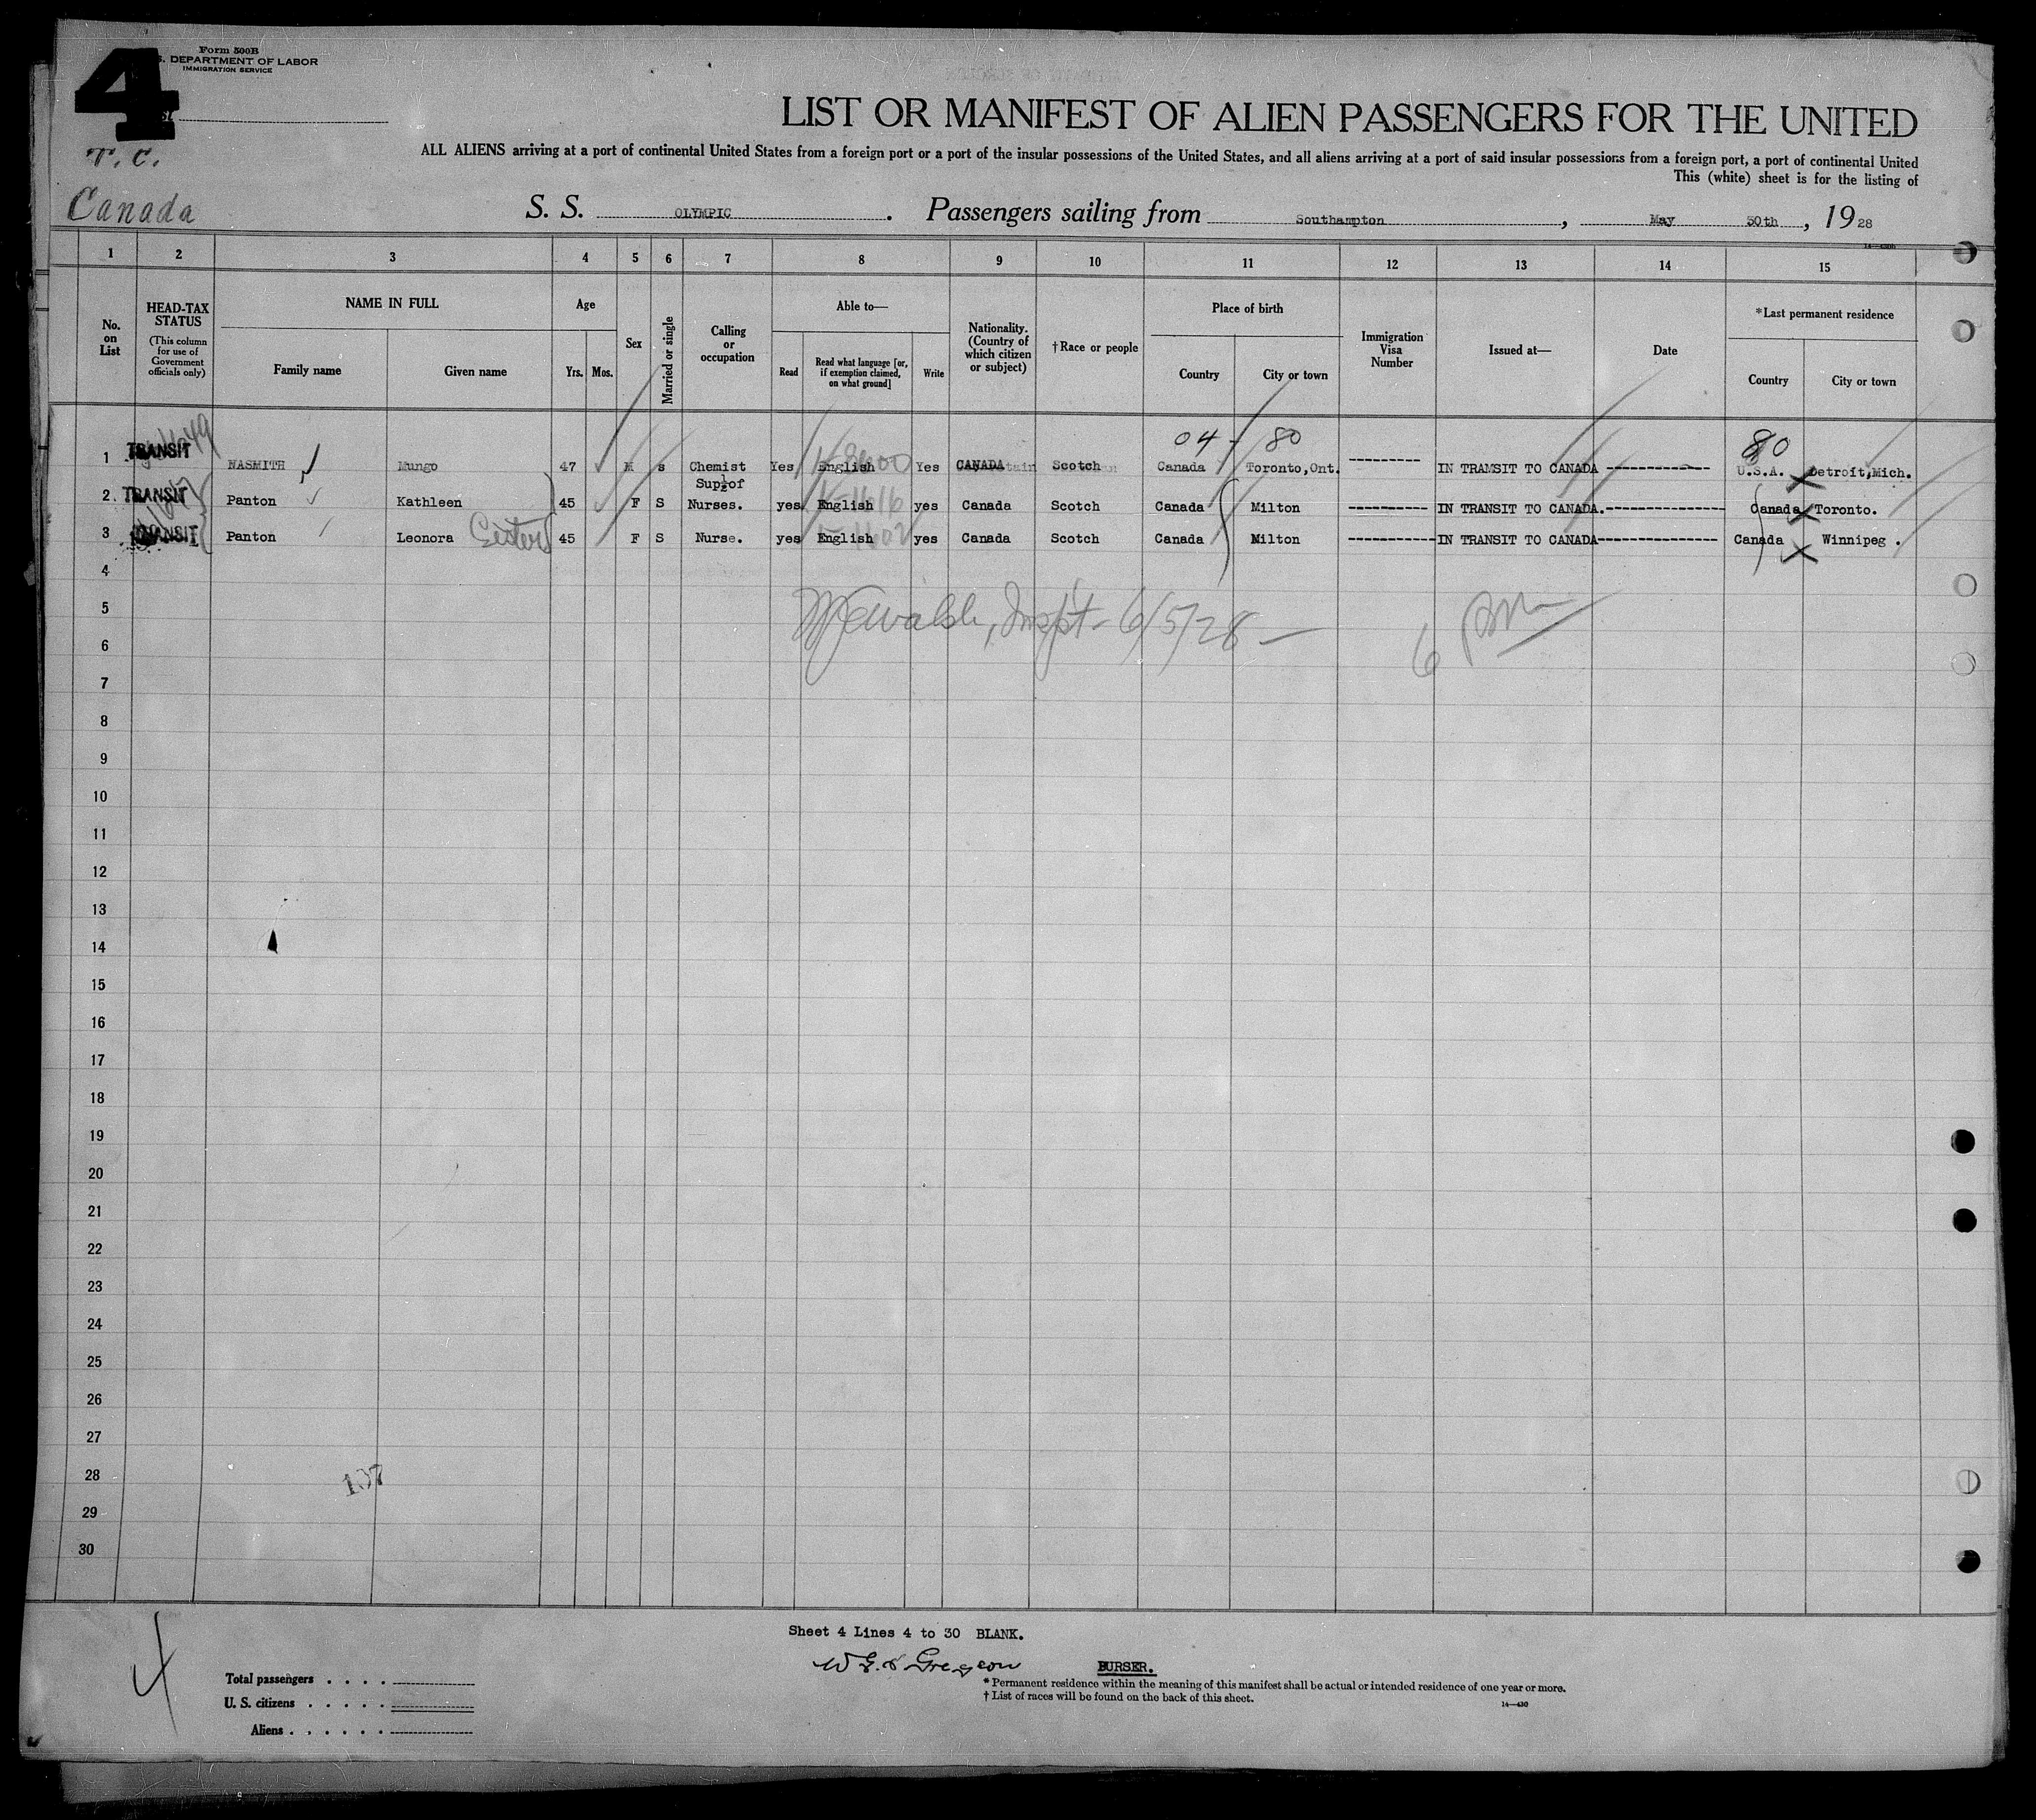 4
Form 500B
S. DEPARTMENT OF LABOR
IMMIGRATION SERVICE
T. C.
Canada
LIST OR MANIFEST OF ALIEN PASSENGERS FOR THE UNITED
ALL ALIENS arriving at a port of continental United States from a foreign port or a port of the insular possessions of the United States, and all aliens arriving at a port of said insular possessions from a foreign port, a port of continental United
This (white) sheet is for the listing of
S. S. OLYMPIC. Passengers sailing from Southampton, May 30th, 1928
1 2 3 4 5 6 7 8 9 10 11 12 13 14 15
No. on List
HEAD-TAX STATUS (This column for use of Government officials only)
NAME IN FULL
Family name Given name
Age
Yrs. Mos.
Sex
Married or single
Calling or occupation
Able to—
Read Read what language [or, if exemption claimed, on what ground] Write
Nationality. (Country of which citizen or subject)
†Race or people
Place of birth
Country City or town
Immigration Visa Number
Issued at—
Date
*Last permanent residence
Country City or town
04 - 80 80
1 TRANSIT NASMITH Mungo 47 M s Chemist Yes English Yes CANADA Scotch Canada Toronto,Ont. ---------- IN TRANSIT TO CANADA ------------- U.S.A. Detroit,Mich.
2 TRANSIT Panton Kathleen 45 F S Sup't of Nurses. yes English yes Canada Scotch Canada Milton ---------- IN TRANSIT TO CANADA.--------------- Canada Toronto.
3 TRANSIT Panton Leonora Sister 45 F S Nurse. yes English yes Canada Scotch Canada Milton -----------IN TRANSIT TO CANADA--------------- Canada Winnipeg .
4
5
Walsh, Inspt - 6/5/28 —
6
6
7
8
9
10
11
12
13
14
15
16
17
18
19
20
21
22
23
24
25
26
27
28
107
29
30
Sheet 4 Lines 4 to 30 BLANK.
PURSER.
4
Total passengers . . . .
U. S. citizens . . . . .
Aliens . . . . . .
* Permanent residence within the meaning of this manifest shall be actual or intended residence of one year or more.
† List of races will be found on the back of this sheet.
14—430